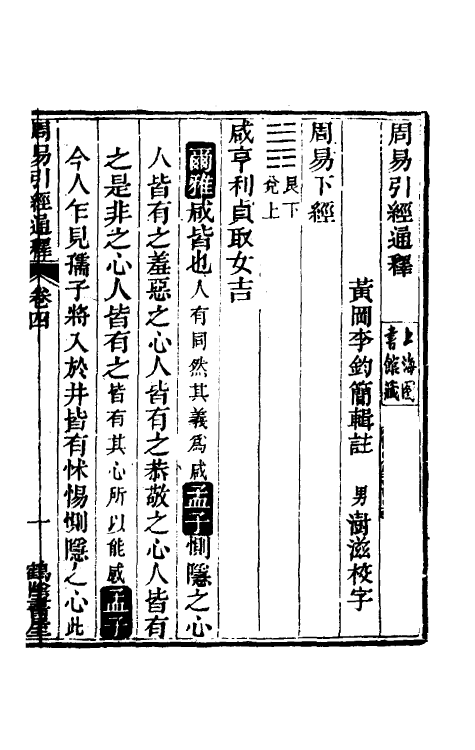 周易引經通釋
上海圖
書館藏
黃岡李鈞簡輯註　男澍滋校字
周易下經
䷞艮下
兌上
咸亨利貞取女吉
爾雅咸皆也人有同然其義爲咸孟子惻隱之心
人皆有之羞惡之心人皆有之恭敬之心人皆有
之是非之心人皆有之皆有其心所以能感孟子
今人乍見孺子將入於井皆有怵惕惻隱之心此
周易引經通釋　卷四　一　鶴陰書屋